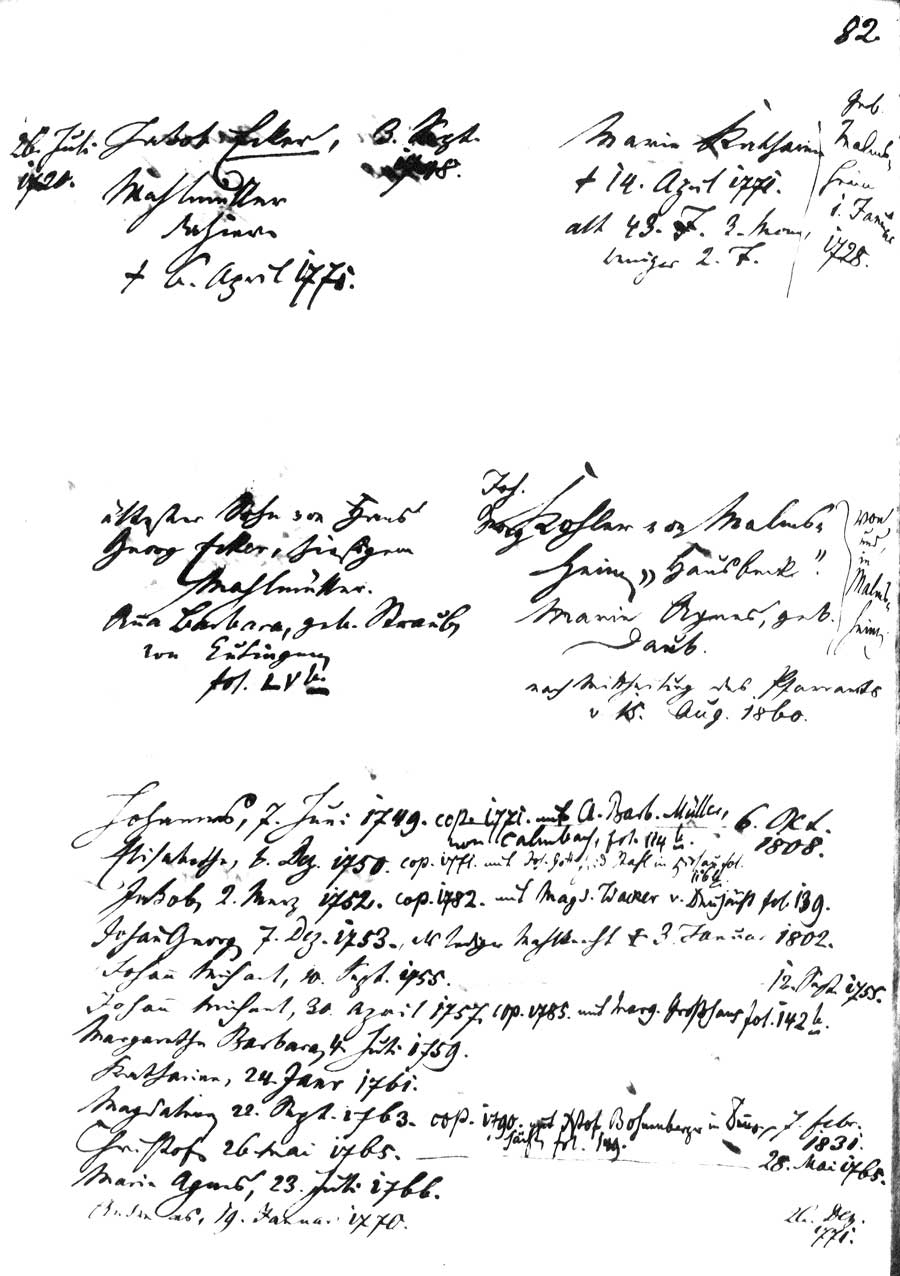 82.
26. Juli 1720.
Jakob Ecker, 3. Sept. 1748.
Mahlmüller
dahier.
† 6. April 1771.
Marie Katharine
† 14. April 1771.
alt 43. J. 3. Mon.,
weniger 2. T.
geb.
Malms,
heim
1. Januar
1728.
ältester Sohn von Hans
Georg Ecker, hiesigem
Mahlmüller.
Anna Barbara, geb. Straub,
von Eutingen
fol. LV b.
Joh.
Georg Kohler von Malms,
heim, "Hausbeck".
Marie Agnes, geb.
Daub.
von
und
in
Malms,
heim
nach Mittheilung des Pfarramts
v. 15. Aug. 1860.
Johannes, 7. Juni 1749. cop. 1771. mit A. Barb. Müller, 6. Oct. 1808.
von Calmbach, fol. 114 b.
Elisabetha, 6. Dez. 1750. cop. 1771. mit Jos. in Hirsau fol.
116 b.
Jakob, 2. Merz 1752. cop. 1782. mit Magd. Wacker v. fol. 139.
Johann Georg, 7. Dez. 1753., als lediger Mahlknecht † 3. Januar 1802.
Johann Michael, 10. Sept. 1755. 12. Sept. 1755.
Johann Michael, 30. April 1757. cop. 1785. mit Marg. Großhans fol. 142 b.
Margaretha Barbara, 4. Juli 1759.
Katharine, 24. Janr 1761.
Magdalena, 22. Sept. 1763. cop. 1790. mit Xstof. Bohnenberger in 7. Febr. 1831.
fol. 149.
Christof, 26. Mai 1765. 28. Mai 1765.
Marie Agnes, 23. Juli 1766.
Andreas, 19. Januar 1770. 26. Dez. 1771.